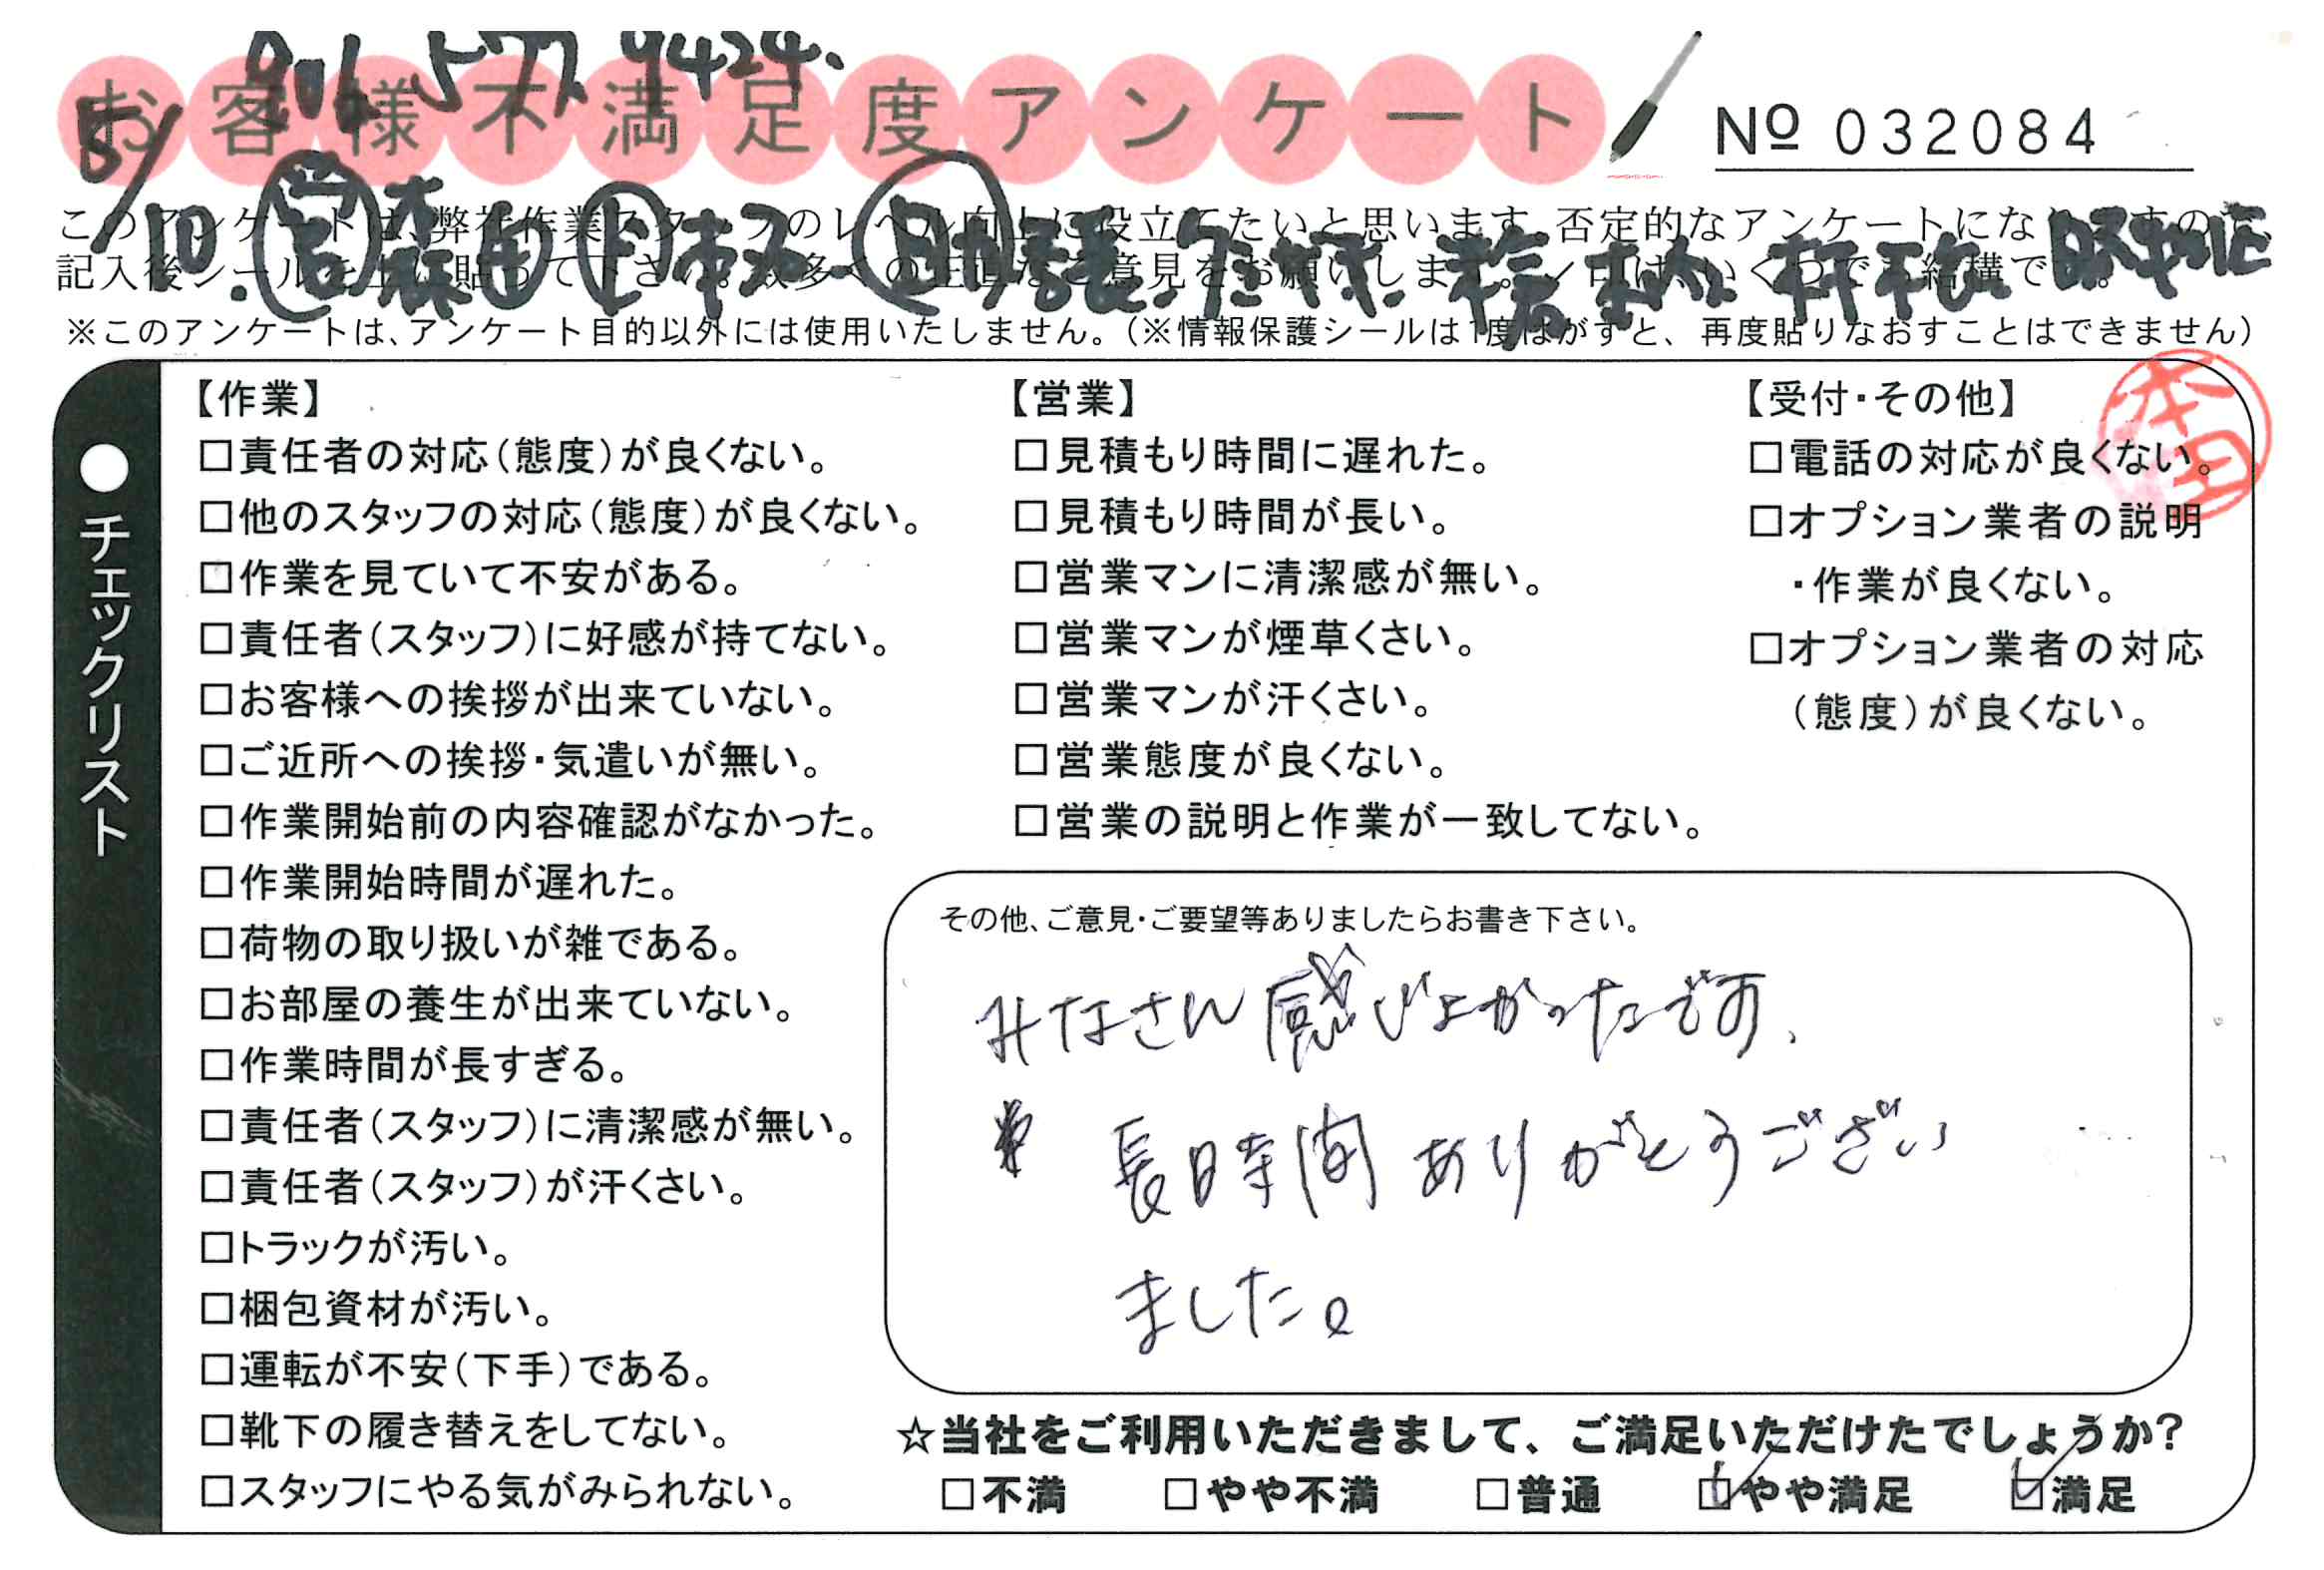 9424.
お客様不満足度アンケート
№ 032084
5/10.
このアンケートは、弊社作業スタッフのレベル向上に役立てたいと思います。否定的なアンケートになりますの
記入後シールを上に貼って下さい。数多くの正直なご意見をお願いします。✓印は、いくつでも結構です。
※このアンケートは、アンケート目的以外には使用いたしません。（※情報保護シールは1度はがすと、再度貼りなおすことはできません）
●チェックリスト
【作業】
□責任者の対応（態度）が良くない。
□他のスタッフの対応（態度）が良くない。
□作業を見ていて不安がある。
□責任者（スタッフ）に好感が持てない。
□お客様への挨拶が出来ていない。
□ご近所への挨拶・気遣いが無い。
□作業開始前の内容確認がなかった。
□作業開始時間が遅れた。
□荷物の取り扱いが雑である。
□お部屋の養生が出来ていない。
□作業時間が長すぎる。
□責任者（スタッフ）に清潔感が無い。
□責任者（スタッフ）が汗くさい。
□トラックが汚い。
□梱包資材が汚い。
□運転が不安（下手）である。
□靴下の履き替えをしてない。
□スタッフにやる気がみられない。
【営業】
□見積もり時間に遅れた。
□見積もり時間が長い。
□営業マンに清潔感が無い。
□営業マンが煙草くさい。
□営業マンが汗くさい。
□営業態度が良くない。
□営業の説明と作業が一致してない。
【受付・その他】
□電話の対応が良くない。
□オプション業者の説明
・作業が良くない。
□オプション業者の対応
（態度）が良くない。
その他、ご意見・ご要望等ありましたらお書き下さい。
みなさん感じよかったです、
長時間ありがとうござい
ました。
☆当社をご利用いただきまして、ご満足いただけたでしょうか？
□不満 □やや不満 □普通 ☑やや満足 ☑満足